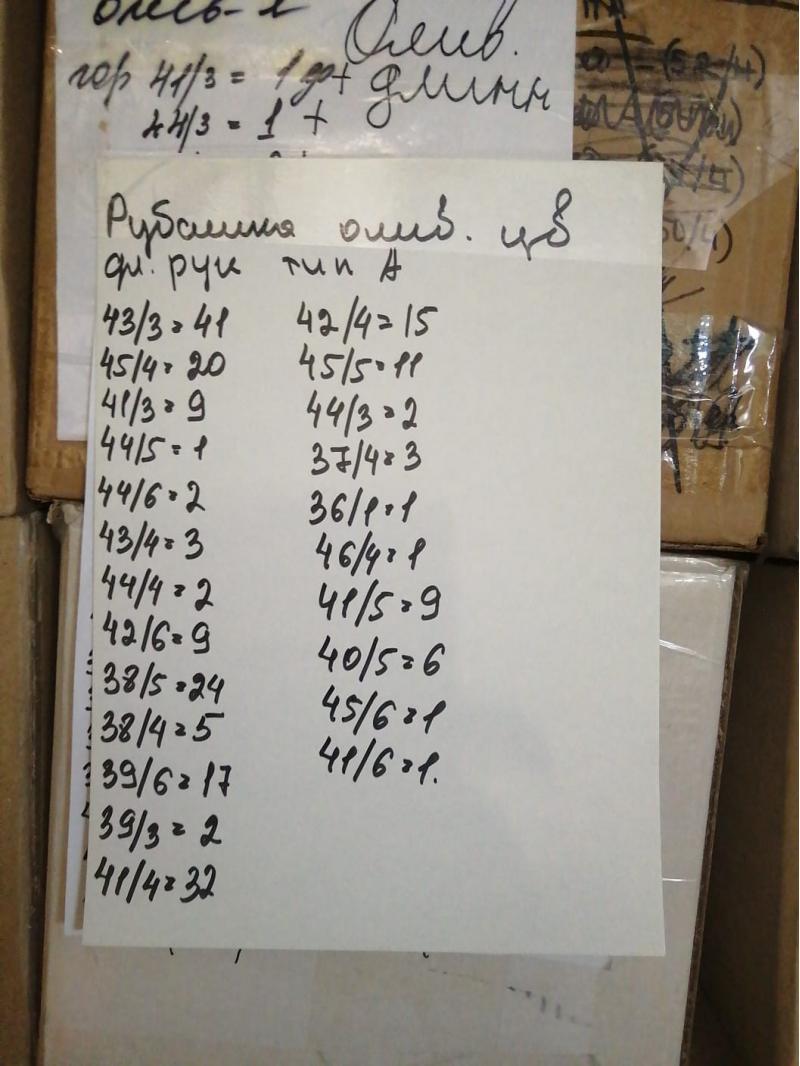 Олив.
гор 41/3 = 1 до+ длинн
44/3 = 1 +
(52/4)
50/4)
Рубашка олив. цв
дл. рук тип А
43/3 = 41
45/4 = 20
41/3 = 9
44/5 = 1
44/6 = 2
43/4 = 3
44/4 = 2
42/6 = 9
38/5 = 24
38/4 = 5
39/6 = 17
39/3 = 2
41/4 = 32
42/4 = 15
45/5 = 11
44/3 = 2
37/4 = 3
36/1 = 1
46/4 = 1
41/5 = 9
40/5 = 6
45/6 = 1
41/6 = 1.